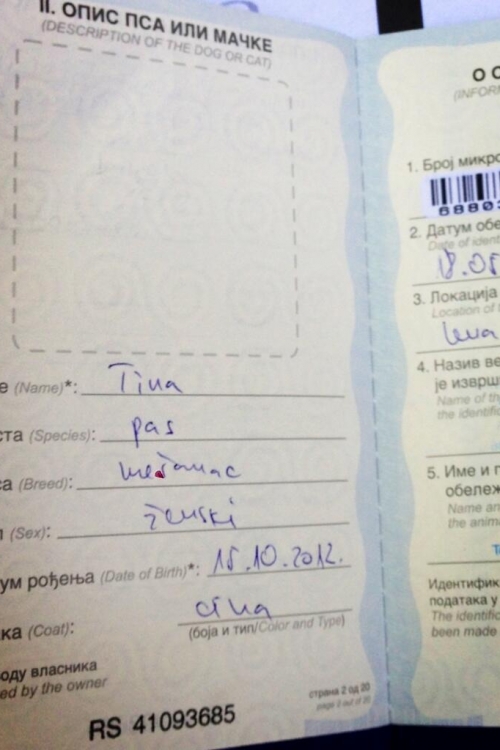 II. ОПИС ПСА ИЛИ МАЧКЕ
(DESCRIPTION OF THE DOG OR CAT)
е (Name)*: Tina
ста (Species): pas
са (Breed): mešanac
л (Sex): ženski
ум рођења (Date of Birth)*: 15.10.2012.
ка (Coat): crna
(боја и тип/Color and Type)
оду власника
ed by the owner
страна 2 од 20
page 2 out of 20
RS 41093685
О С
(INFORM
1. Број микро
68803
2. Датум обе
Date of ident
18.05
3. Локација
Location of t
leva
4. Назив ве
је изврш
Name of th
the identifi
5. Име и п
обележ
Name an
the anim
Идентифик
података у
The identific
been made